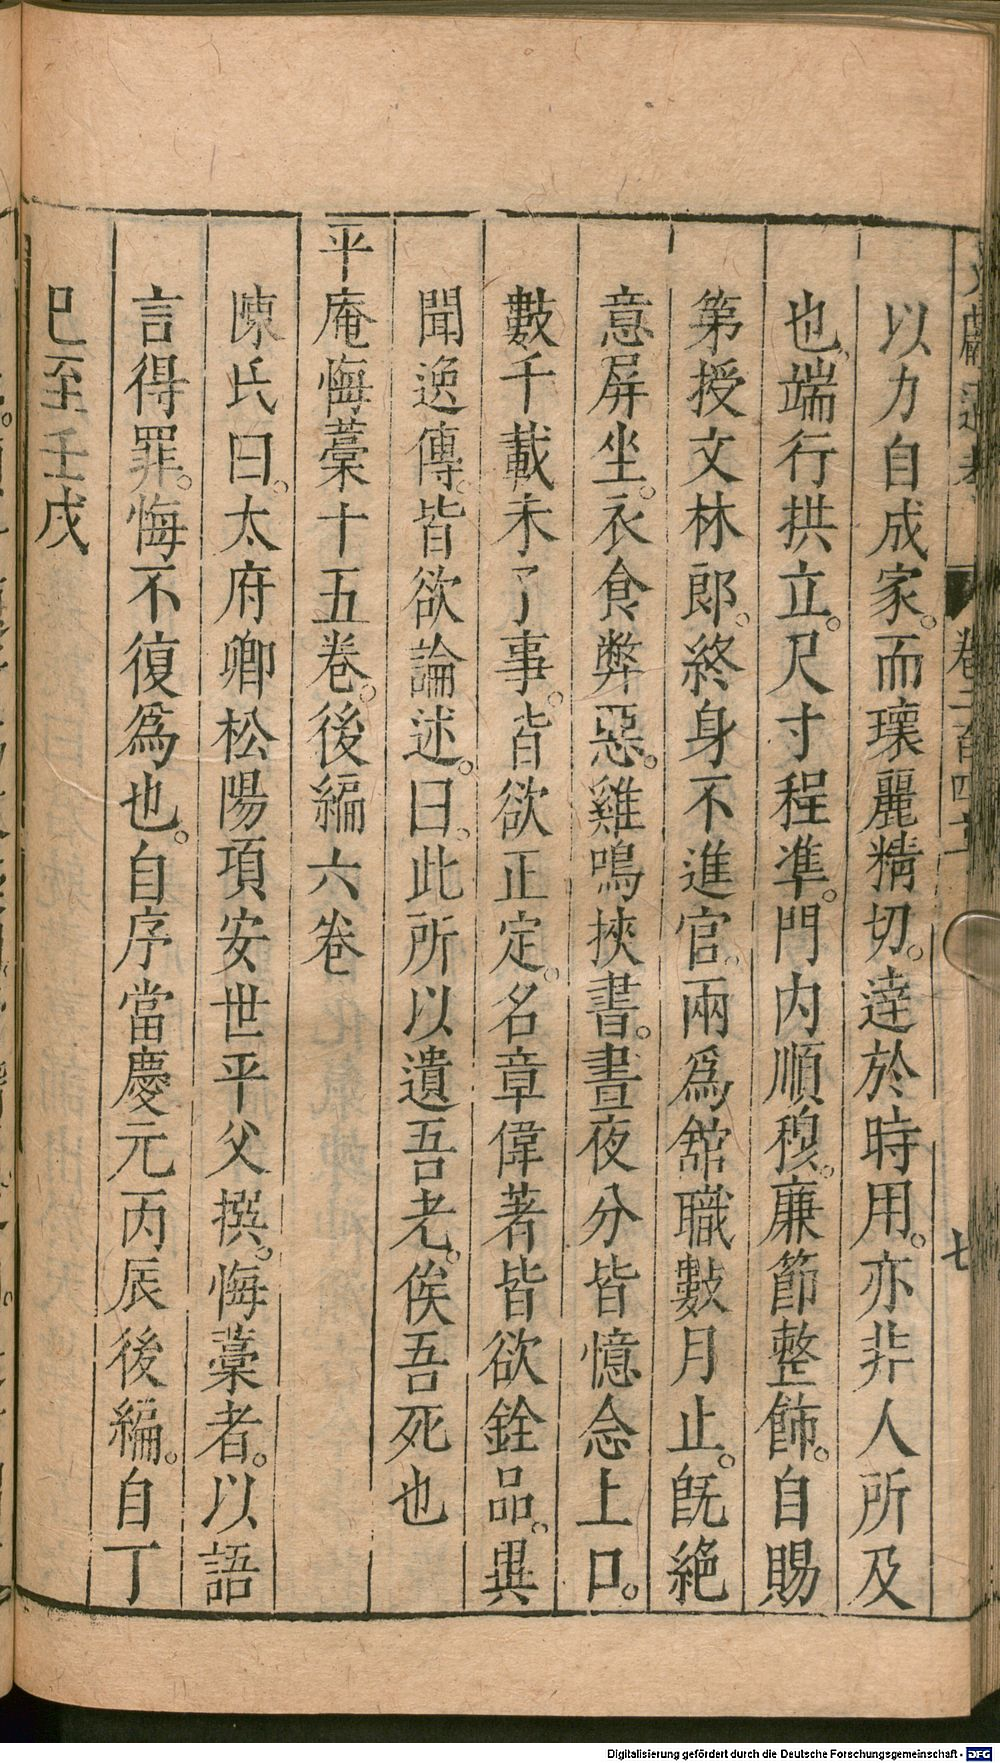 文獻通考 卷二百四十 七
以力自成家。而瓌麗精切。達於時用。亦非人所及
也。端行拱立。尺寸程準。門内順穆。廉節整飾。自賜
第授文林郎。終身不進官。兩爲舘職數月止。旣絶
意屏坐。衣食弊惡。雞鳴挾書。晝夜分皆憶念上口。
數千載未了事。皆欲正定。名章偉著皆欲銓品。異
聞逸傳。皆欲論述。曰。此所以遺吾老。俟吾死也
平庵悔藁十五卷。後編六卷
陳氏曰。太府卿松陽項安世平父撰。悔藁者。以語
言得罪。悔不復爲也。自序當慶元丙辰後編。自丁
巳至壬戌
Digitalisierung gefördert durch die Deutsche Forschungsgemeinschaft - DFG